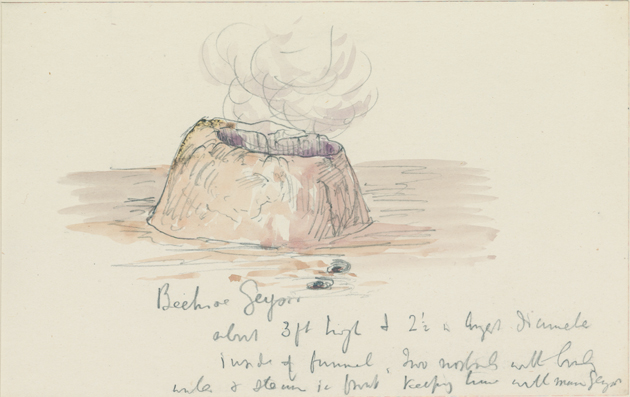 Beehive Geyser
about 3ft high & 2½ in largest diameter
inside of funnel, two nostrils with
wide & steam in front keeping time with main Geyser